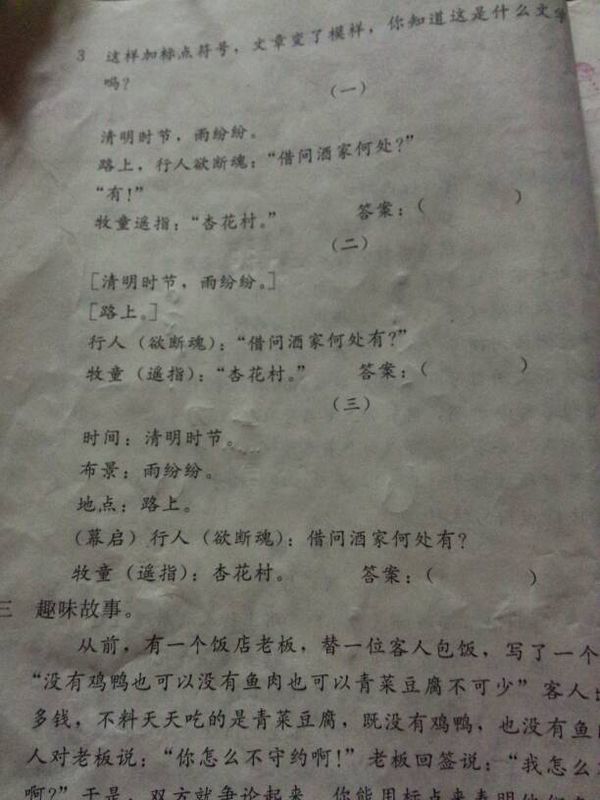 3 这样加标点符号，文章变了模样，你知道这是什么文学
吗?
（一）
清明时节，雨纷纷。
路上，行人欲断魂：“借问酒家何处?”
“有!”
牧童遥指：“杏花村。” 答案：（ ）
（二）
［清明时节，雨纷纷。］
［路上。］
行人（欲断魂）：“借问酒家何处有?”
牧童（遥指）：“杏花村。” 答案：（ ）
（三）
时间：清明时节。
布景：雨纷纷。
地点：路上。
（幕启）行人（欲断魂）：借问酒家何处有?
牧童（遥指）：杏花村。 答案：（ ）
三 趣味故事。
从前，有一个饭店老板，替一位客人包饭，写了一个
“没有鸡鸭也可以没有鱼肉也可以青菜豆腐不可少” 客人
多钱，不料天天吃的是青菜豆腐，既没有鸡鸭，也没有鱼
人对老板说：“你怎么不守约啊!” 老板回签说：“我怎么
啊?” 于是，双方就争论起来，你能用标点来表明